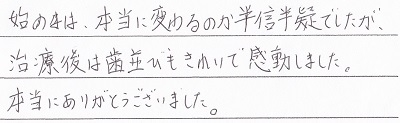 始めは、本当に変わるのか半信半疑でしたが、
治療後は歯並びもきれいで感動しました。
本当にありがとうございました。